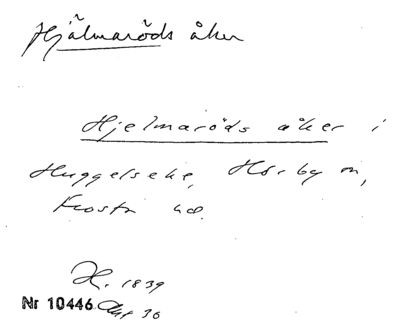 Hjälmaröds åker
Hjelmaröds åker i
Huggelseke, Hörby sn,
Frosta hd.
H. 1839
Nr 10446 36